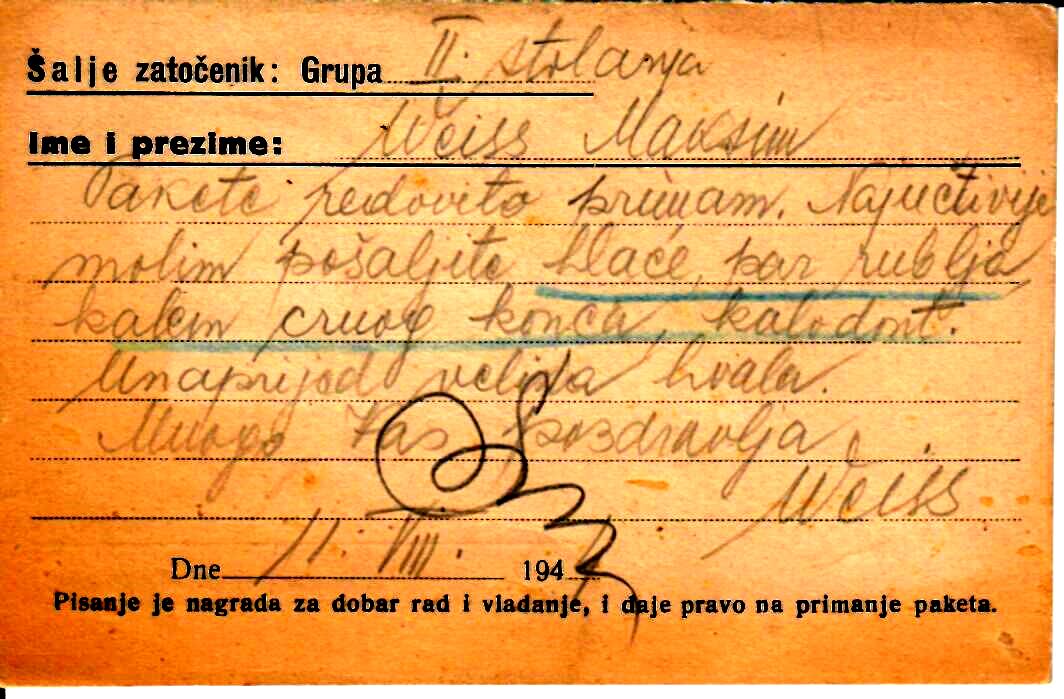 Šalje zatočenik: Grupa II. stolarija
Ime i prezime: Weiss Maksim
Pakete redovito primam. Najučtivije
molim pošaljite hlače, par rublja
kalem crnog konca, kalodont.
Unaprijed velika hvala.
Mnogo Vas pozdravlja
Weiss
Dne 11. VIII. 194
Pisanje je nagrada za dobar rad i vladanje, i daje pravo na primanje paketa.